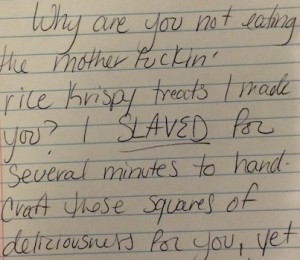 Why are you not eating
the mother fuckin'
rice krispy treats I made
you? I SLAVED for
several minutes to hand-
craft these squares of
deliciousness for you, yet